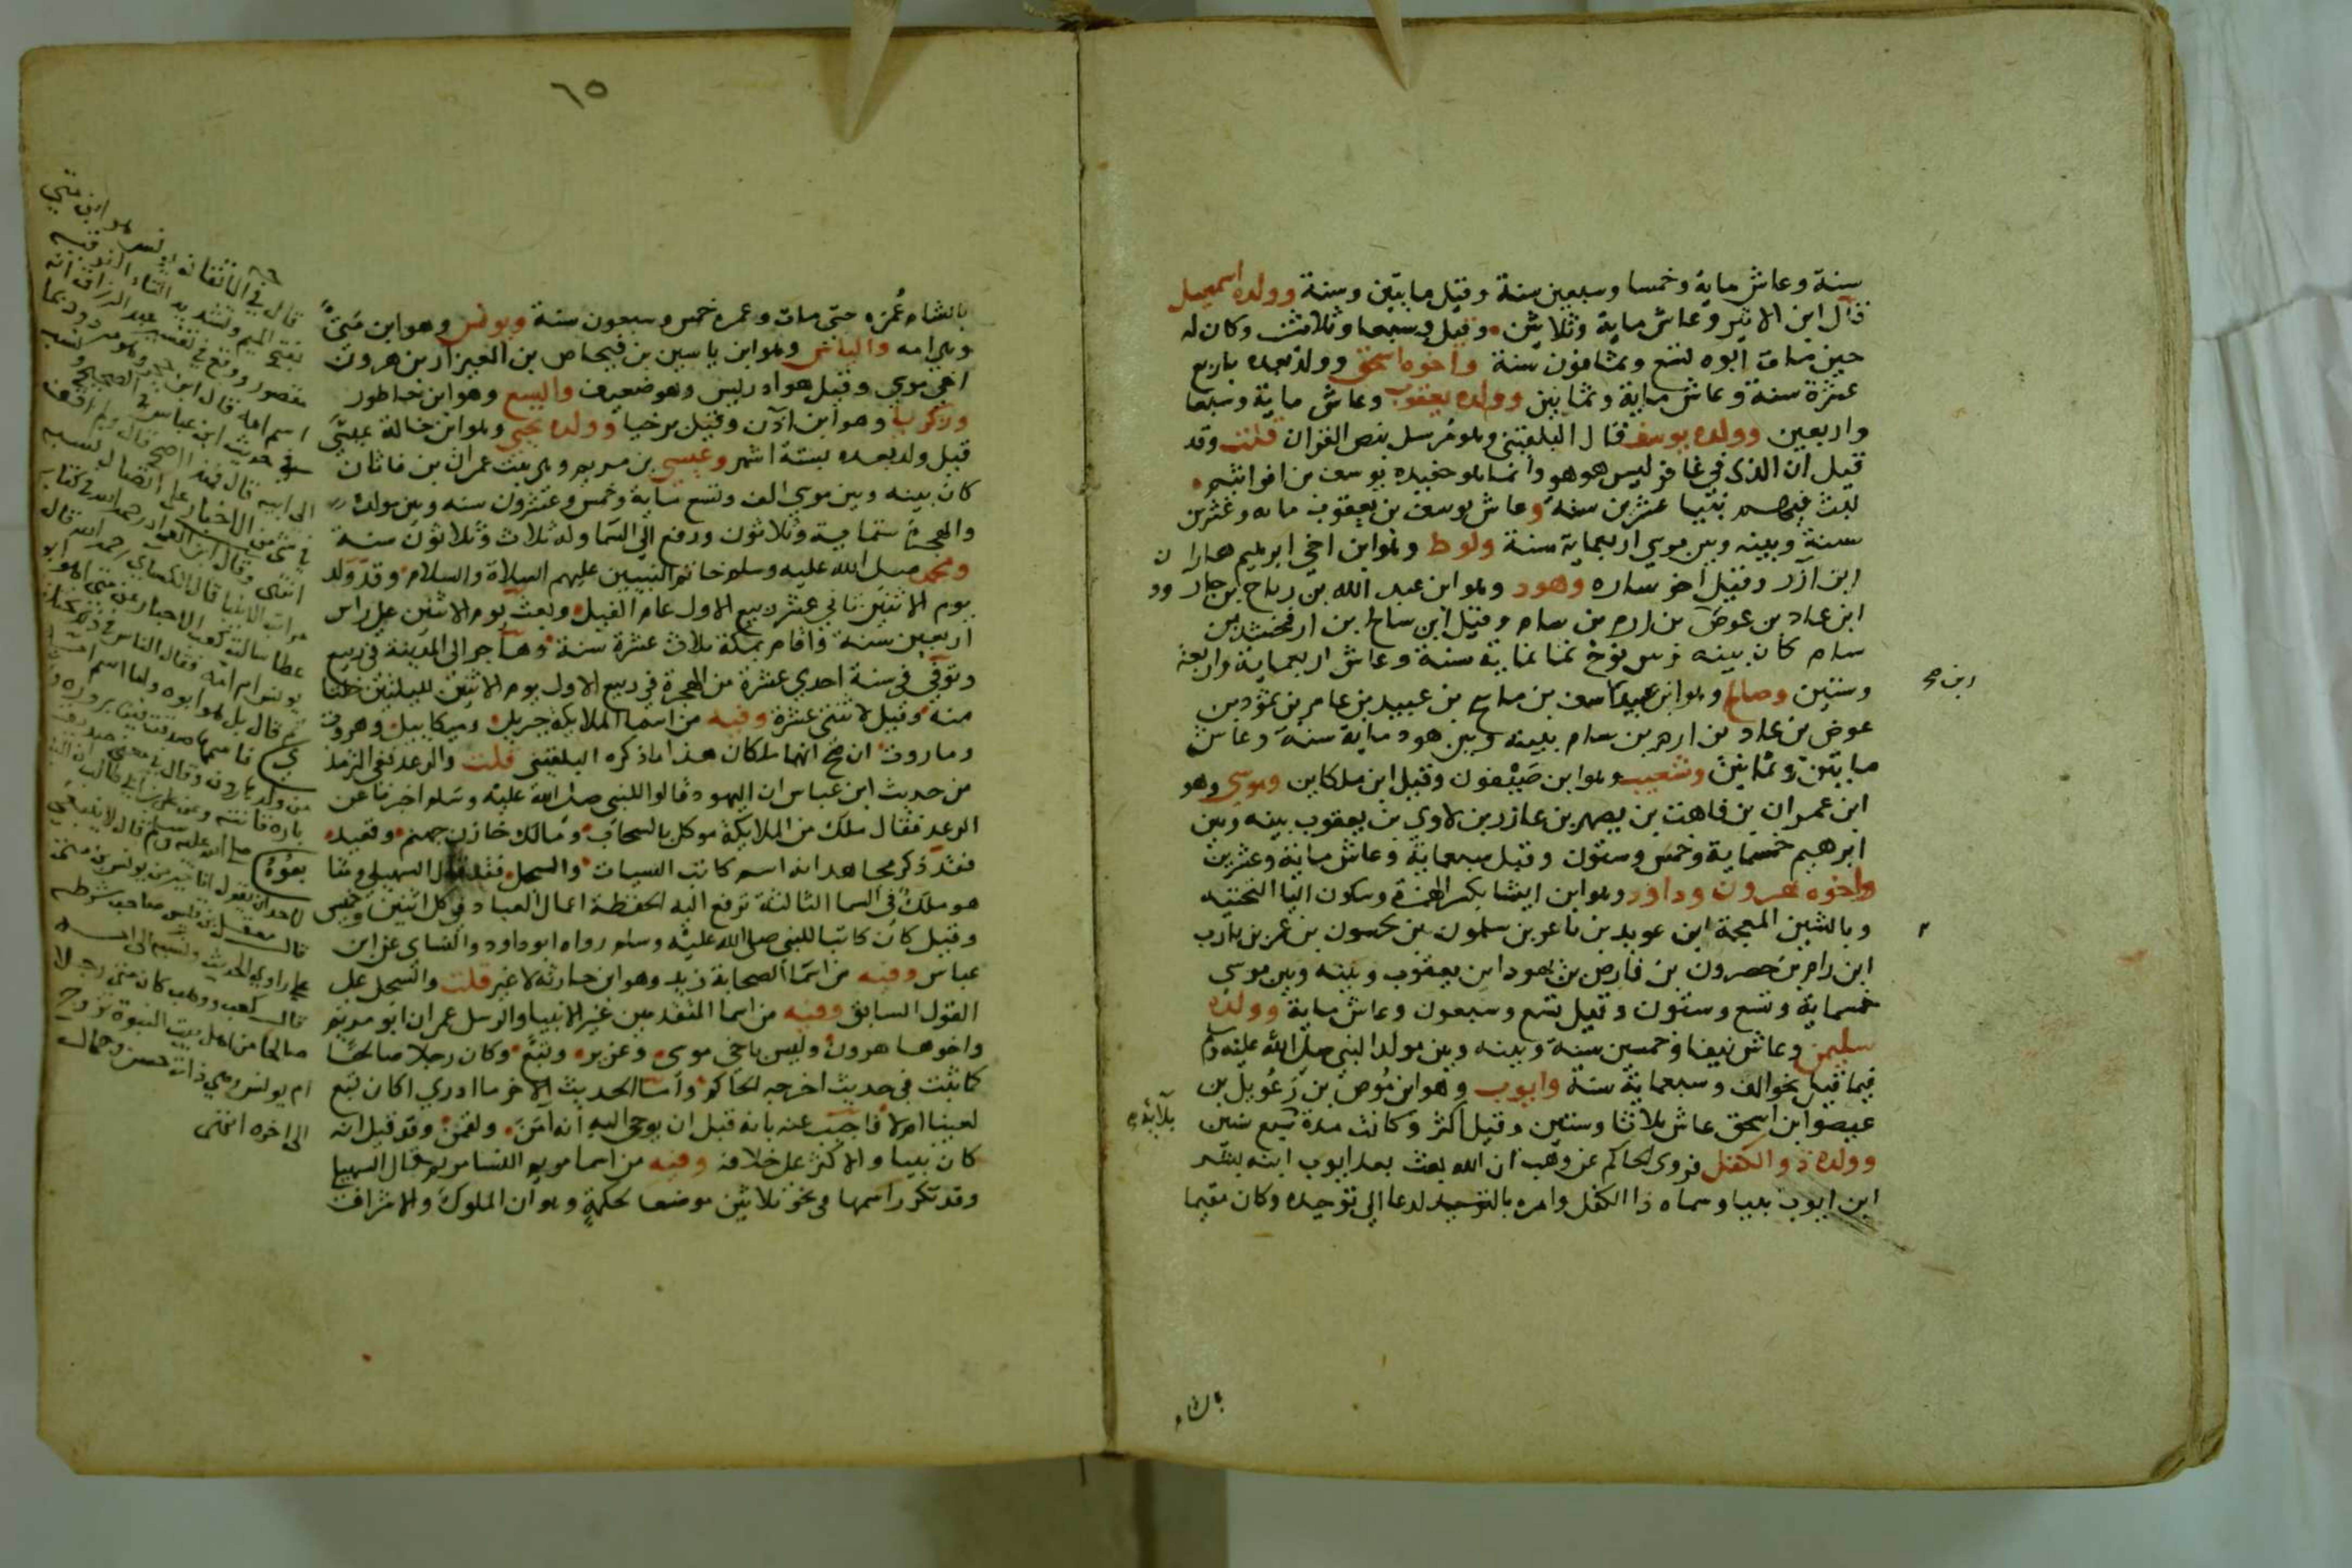 سنة وعاش ماية وخمسا وسبعين سنة وقيل مايتين وسنة وولده اسمعيل
قال ابن الاثير وعاش ماية وثلاثين وقيل وسبعا وثلاثين وكان له
حين مات ابوه تسع وثمانون سنة واخوه اسحق وولد بعده باربع
عشرة سنة وعاش ماية وثمانين وولده يعقوب وعاش ماية وسبعا
واربعين وولده يوسف قال البلقيني وهو مرسل بنص القران قلت وقد
قيل ان الذي في غافر ليس هو هو وانما هو حفيده يوسف بن افراثيم
لبث فيهم نبيا عشرين سنة وعاش يوسف بن يعقوب مايه وعشرين
سنة وبينه وبين موسي اربعماية سنة ولوط وهو ابن اخي ابرهيم هاران
ابن آزر وقيل اخو ساره وهود وهو ابن عبد الله بن رباح بن
ابن عاد بن عوض بن ارم بن سام وقيل ابن سالخ بن ارفخشد بن
سام كان بينه وبين نوح ثمانماية سنة وعاش اربعماية واربعة
وستين وصالح وهو ابن عبيد بن عبيد بن عامر بن ثمود بن
ابن صح
عوض بن عاد بن ارم بن سام بينه وبين هود ماية سنة وعاش
مايتين وثمانين وشعيب وهو ابن صيفون وقيل ابن ملكاين وموسي وهو
ابن عمران بن قاهت بن يصهر بن عازر بن لاوي بن يعقوب بينه وبين
ابرهيم خمسماية وخمس وستون وقيل سبعماية وعاش ماية وعشرين
واخوه هرون وداود وهو ابن ايشا بكسر الهمزة وسكون اليا التحتيه
وبالشين المعجمة ابن عوبد بن باعر بن سلمون بن يحسون بن عمر بن يارب
ابن رام بن حصرون بن فارص بن يهود ابن يعقوب وبينه وبين موسي
خمسماية وتسع وستون وقيل تسع وسبعون وعاش ماية وولده
سليمن وعاش نيفا وخمسين سنة وبينه وبين مولد النبي صلى الله عليه وسلم
فيما قيل نحو الف وسبعماية سنة وايوب وهو ابن موص بن رعويل بن
عيصو ابن اسحق عاش ثلاثا وستين وقيل اكثر وكانت مدة سبع سنين
بلايه
وولده ذو الكفل فروي الحاكم عن وهب ان الله بعث بعد ايوب ابنه بشر
ابن ايوب نبيا وسماه ذا الكفل وامره بالتوحيد لدعا الى توحيده وكان مقيما
بالشام
٦٥
بالشام عمره حتى مات وعمره خمس وسبعون سنة ويونس وهو ابن متى
وهي امه والياس وهو ابن ياسين بن فيحاص بن العيزار بن هرون
اخي موسي وقيل هو ادريس وهو ضعيف واليسع وهو ابن خطور
وزكريا وهو ابن ادن وقيل برخيا وولده يحيي وهو ابن خالة عيسى
قيل ولد بعده بستة اشهر وعيسي بن مريم وهي بنت عمران بن ماثان
كان بينه وبين موسي الف وتسع ماية وخمس وعشرون سنه وبين مولده
والهجرة ستماية وثلاثون ورفع الى السما وله ثلاث وثلاثون سنة
ومحمد صلى الله عليه وسلم خاتم النبيين عليهم الصلاة والسلام وقد ولد
يوم الاثنين ثاني عشر ربيع الاول عام الفيل وبعث يوم الاثنين على راس
اربعين سنة واقام بمكة ثلاث عشرة سنة وهاجر الى المدينة في ربيع
وتوفي في سنة احدي عشرة من الهجرة في ربيع الاول يوم الاثنين لليلتين خلتا
منه وقيل لاثنتي عشرة وفيه من اسما الملايكة جبريل وميكاييل وهروت
وماروت ان صح انهما ملكان هذا ما ذكره البلقيني قلت والرعد ففي الترمذ
من حديث ابن عباس ان اليهود قالوا للنبي صلى الله عليه وسلم اخبرنا عن
الرعد فقال ملك من الملايكة موكل بالسحاب ومالك خازن جهنم وقعيد
فقد ذكر مجاهد انه اسم كاتب السيات والسجل فقد قال السهيلي
هو ملك في السما الثالثة ترفع اليه الحفظة اعمال العباد في كل اثنين وخميس
وقيل كان كاتبا للنبي صلى الله عليه وسلم رواه ابوداود والنساي عن ابن
عباس وفيه من اسما الصحابة زيد وهو ابن حارثه لا غير قلت والسجل على
القول السابق وفيه من اسما المتقدمين غير الانبيا والرسل عمران ابو مريم
واخوها هرون وليس باخي موسي وعزير وتبع وكان رجلا صالحا
كما ثبت في حديث اخرجه الحاكم واما الحديث الاخر ما ادري اكان تبع
لعينا ام لا فاجيب عنه بانه قبل ان يوحي اليه انه امن ولقمن وقد قيل انه
كان نبيا والاكثر على خلافه وفيه من اسما مريم النسا مريم قال السهيلي
وقد تكرر اسمها في نحو ثلاثين موضعا لحكمة وهو ان الملوك والاشراف
قال في الاتقان يونس هو ابن متى
بفتح الميم وتشديد التاء الفوقيه
مقصور ووقع في تفسير عبد الرزاق انه
اسم امه قال ابن حجر وهو مردود بما
في حديث ابن عباس في الصحيح ونسبه
الى ابيه قال فهذا اصح قال ولم اقف
في شيء من الاخبار على اتصال نسبه
انتهى وقال ابن العماد رحمه الله في كتابه
الانبيا قال الكساي رحمه الله قال
عطا سالت كعب الاحبار عن متى اهو ابو
يونس ام امه فقال الناس في ذلك
قال بل هو ابوه واما اسم امه
من ولد هارون وقال
صلى الله عليه وسلم قال لا ينبغي
لاحد ان يقول انا خير من يونس بن متى
راوي الحديث ونسبه الى ابيه
قال كعب ووهب كان متى رجلا
صالحا من اهل بيت النبوة تزوج
ام يونس وهي ذات حسن وجمال
الى اخره انتهى